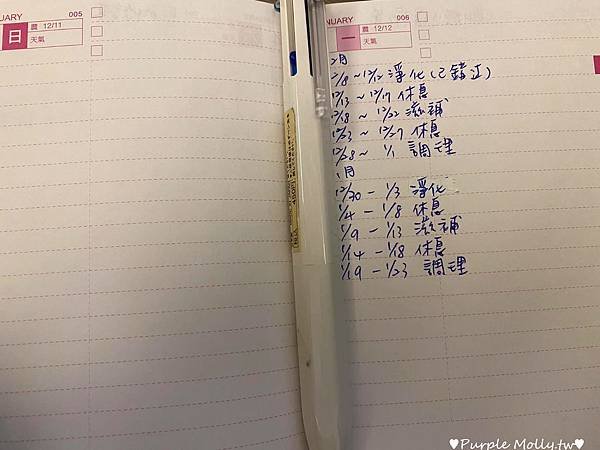 NUARY
005
日
農 12/11
天氣
NUARY
006
一
農 12/12
天氣
2月
12/8 ~ 12/12 淨化 (已錯
12/13 ~ 12/17 休息
12/18 ~ 12/22 滋補
12/23 ~ 12/27 休息
12/28 ~ 1/1 調理
1月
12/30 - 1/3 淨化
1/4 - 1/8 休息
1/9 - 1/13 滋補
1/14 - 1/18 休息
1/19 - 1/23 調理
♥Purple Molly.tw♥